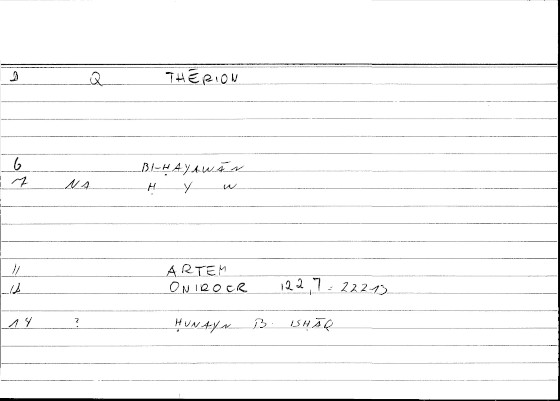 1 Q THĒRION
6 BI-ḤAYAWĀN
7 NA Ḥ Y W
11 ARTEM
12 ONIROCR 122,7 = 222 13
14 ? ḤUNAYN B. ISHĀQ